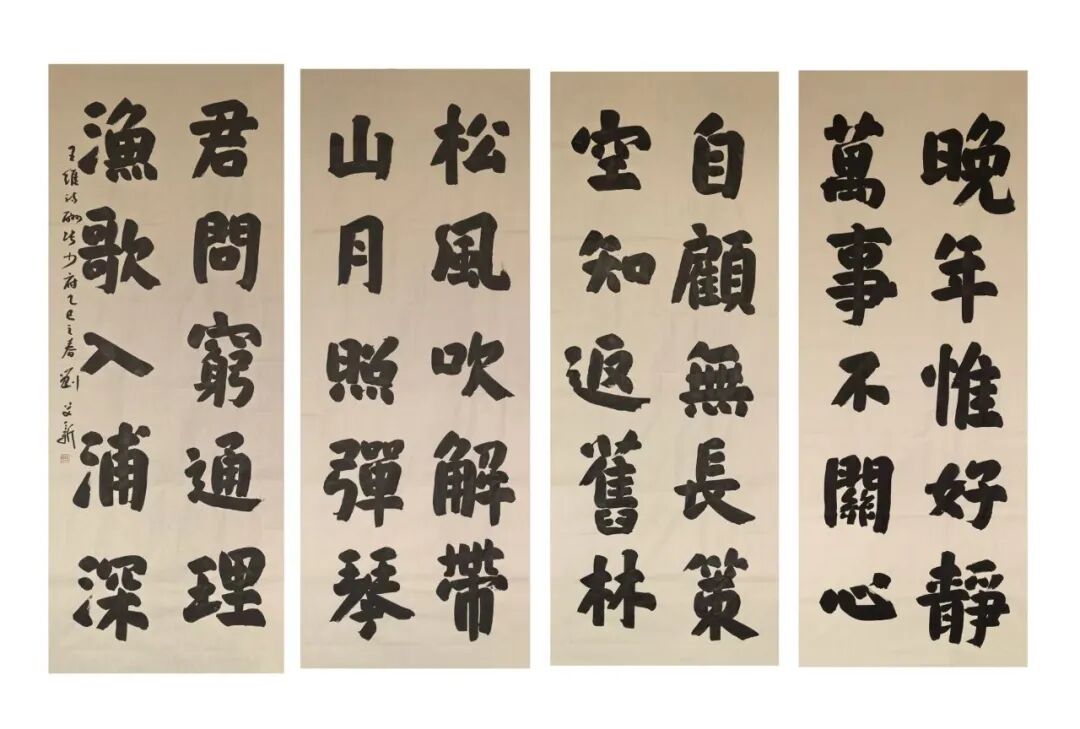 晚年惟好靜
萬事不關心
自顧無長策
空知返舊林
松風吹解帶
山月照彈琴
君問窮通理
漁歌入浦深
王維詩酬張少府乙巳之春劉新